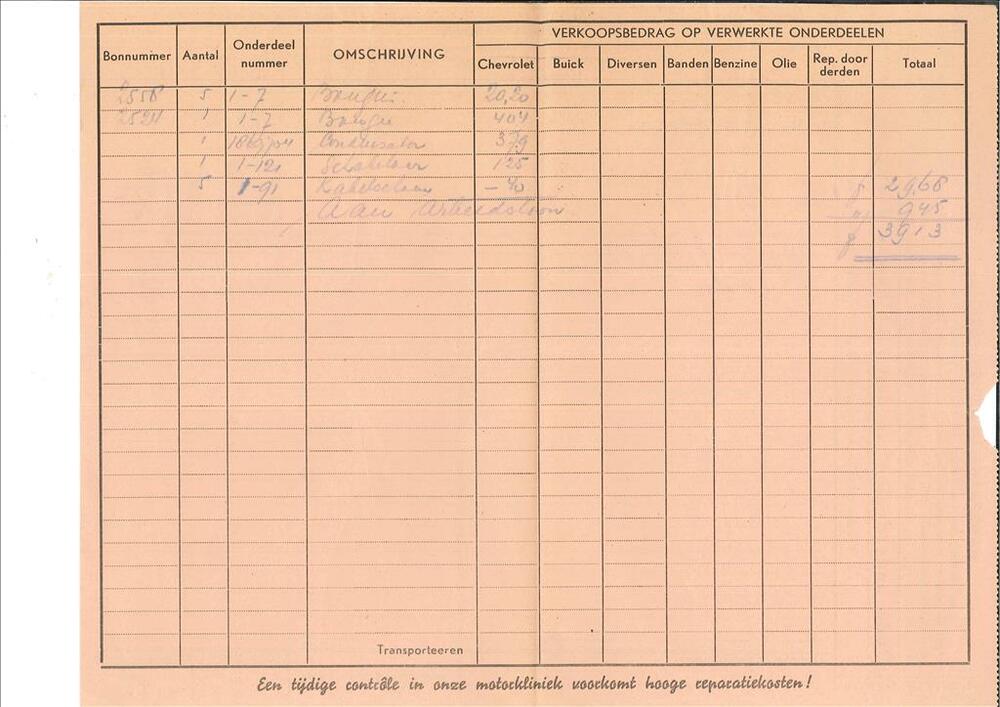 VERKOOPSBEDRAG OP VERWERKTE ONDERDEELEN
Bonnummer Aantal Onderdeel nummer OMSCHRIJVING Chevrolet Buick Diversen Banden Benzine Olie Rep. door derden Totaal
2558 5 1-7 Bougies 20,20
1 1-7 Bougie 404
1 Condensator 379
1 1-121 125
5 1-91 Kabelschoen - 40 f 29,68
Aan Arbeidsloon 945
f 3913
Transporteeren
Een tijdige contrôle in onze motorkliniek voorkomt hooge reparatiekosten!